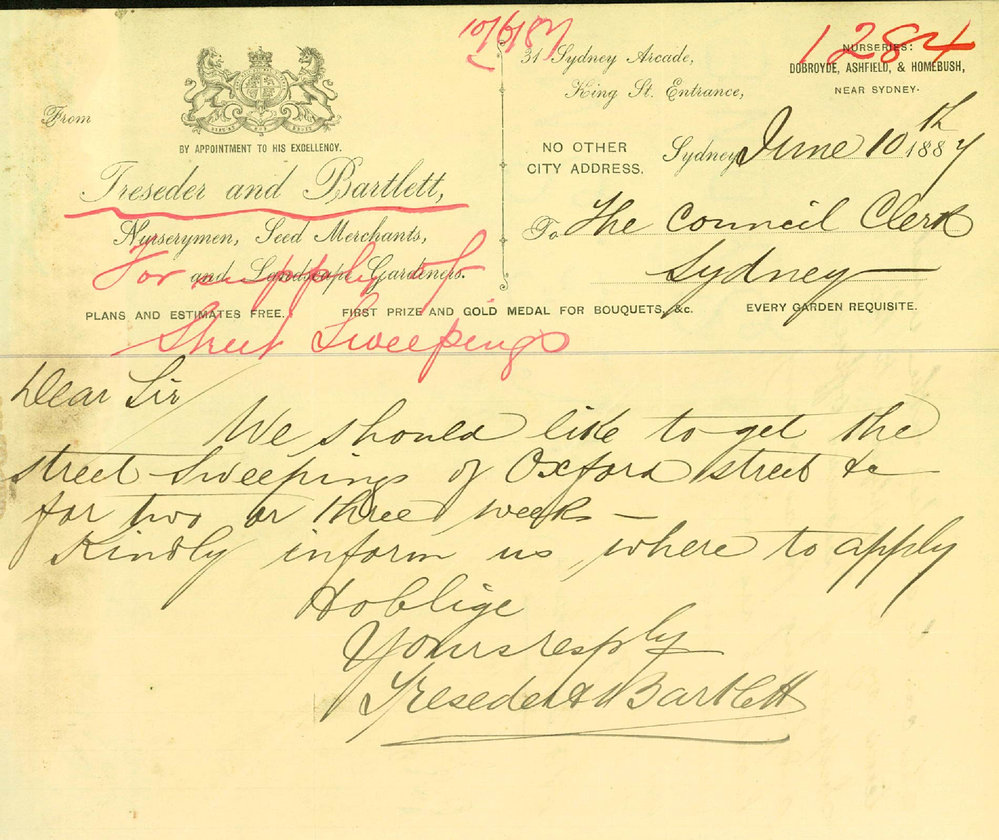 10/6/87
1284
31 Sydney Arcade,
King St. Entrance,
NURSERIES:
DOBROYDE, ASHFIELD, & HOMEBUSH,
NEAR SYDNEY.
From
BY APPOINTMENT TO HIS EXCELLENCY.
Treseder and Bartlett,
Nurserymen, Seed Merchants,
and Landscape Gardeners.
For supply of
Street Sweepings
NO OTHER
CITY ADDRESS.
Sydney, June 10th 1887
To The Council Clerk
Sydney
PLANS AND ESTIMATES FREE.
FIRST PRIZE AND GOLD MEDAL FOR BOUQUETS, &c.
EVERY GARDEN REQUISITE.
Dear Sir
We should like to get the
street sweepings of Oxford street &c
for two or three weeks —
Kindly inform us where to apply
& oblige
Yours resply
Treseder & Bartlett